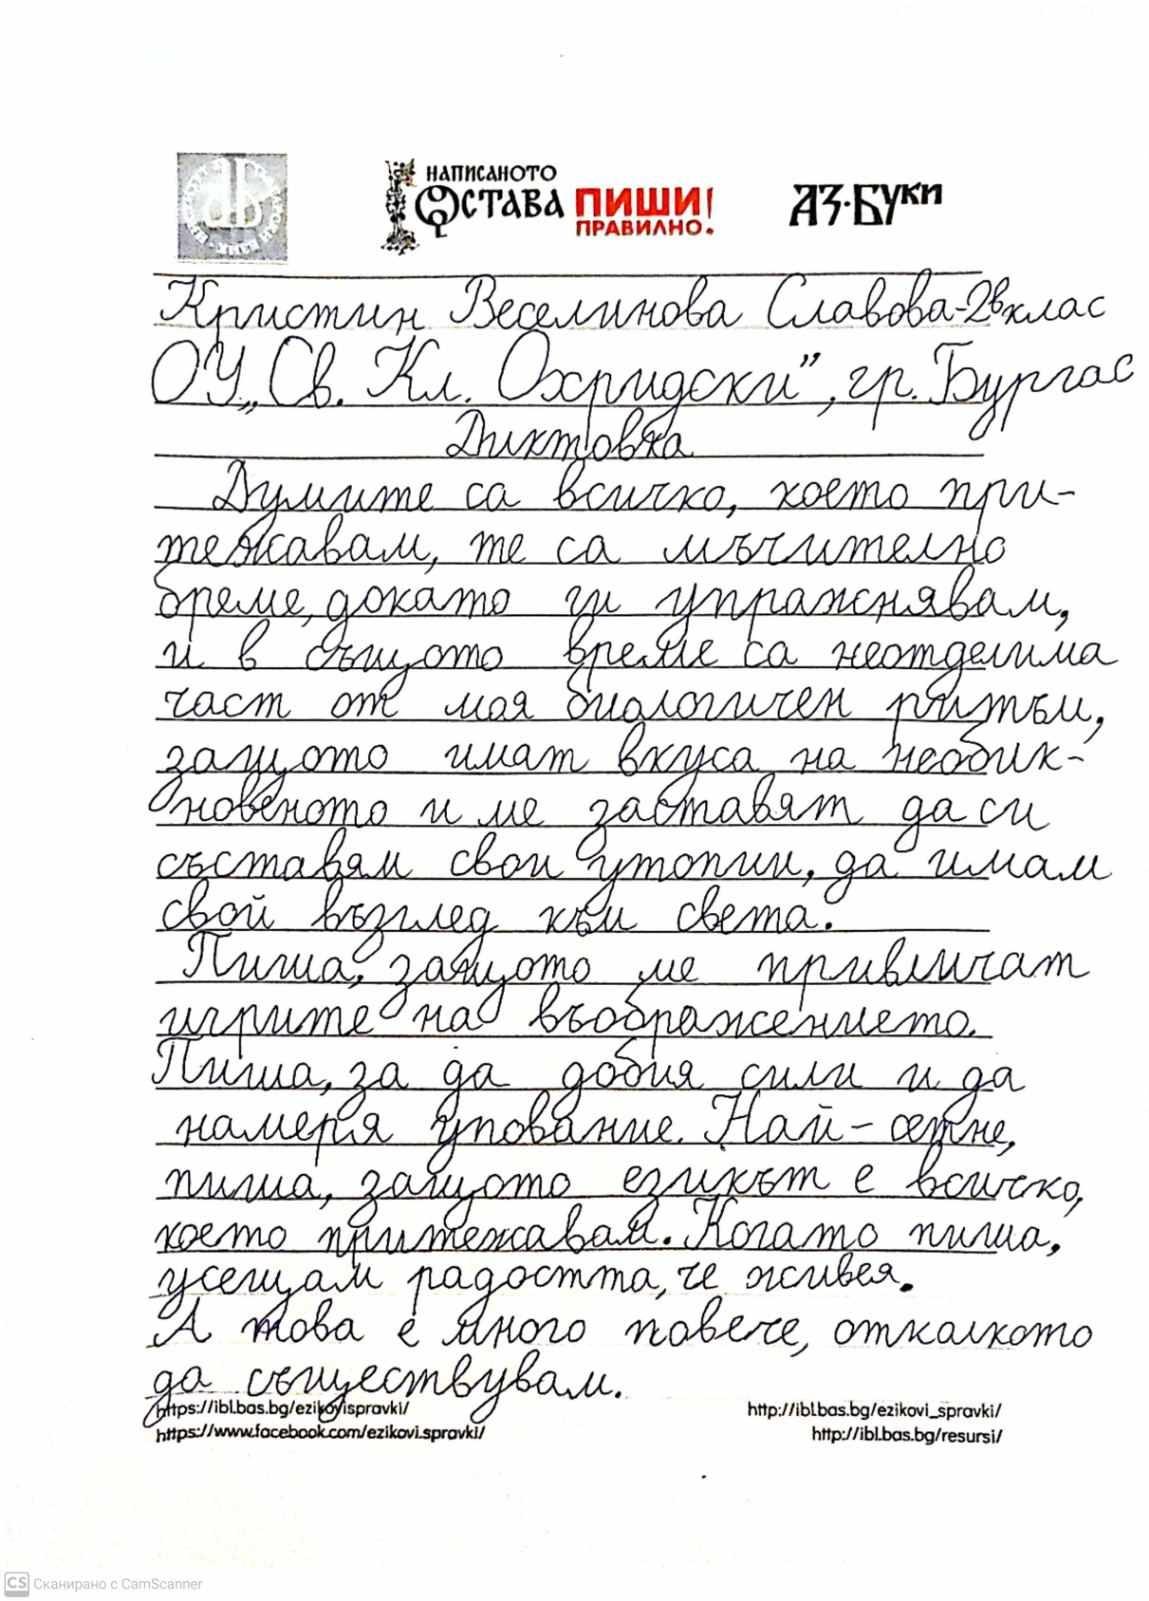 НАПИСАНОТО
ОСТАВА ПИШИ!
ПРАВИЛНО.
АЗ·БУКИ
Кристин Веселинова Славова-2в клас
ОУ „Св. Кл. Охридски”, гр. Бургас
Диктовка
Думите са всичко, което при-
тежавам, те са мъчително
бреме, докато ги упражнявам,
и в същото време са неотделима
част от моя биологичен ритъм,
защото имат вкуса на необик-
новеното и ме заставят да си
съставям свои утопии, да имам
свой възглед към света.
Пиша, защото ме привличат
игрите на въображението.
Пиша, за да добия сили и да
намеря упование. Най-сетне,
пиша, защото езикът е всичко,
което притежавам. Когато пиша,
усещам радостта, че живея.
А това е много повече, отколкото
да съществувам.
https://ibl.bas.bg/ezikovispravki/
http://ibl.bas.bg/ezikovi_spravki/
https://www.facebook.com/ezikovi.spravki/
http://ibl.bas.bg/resursi/
CS Сканирано с CamScanner